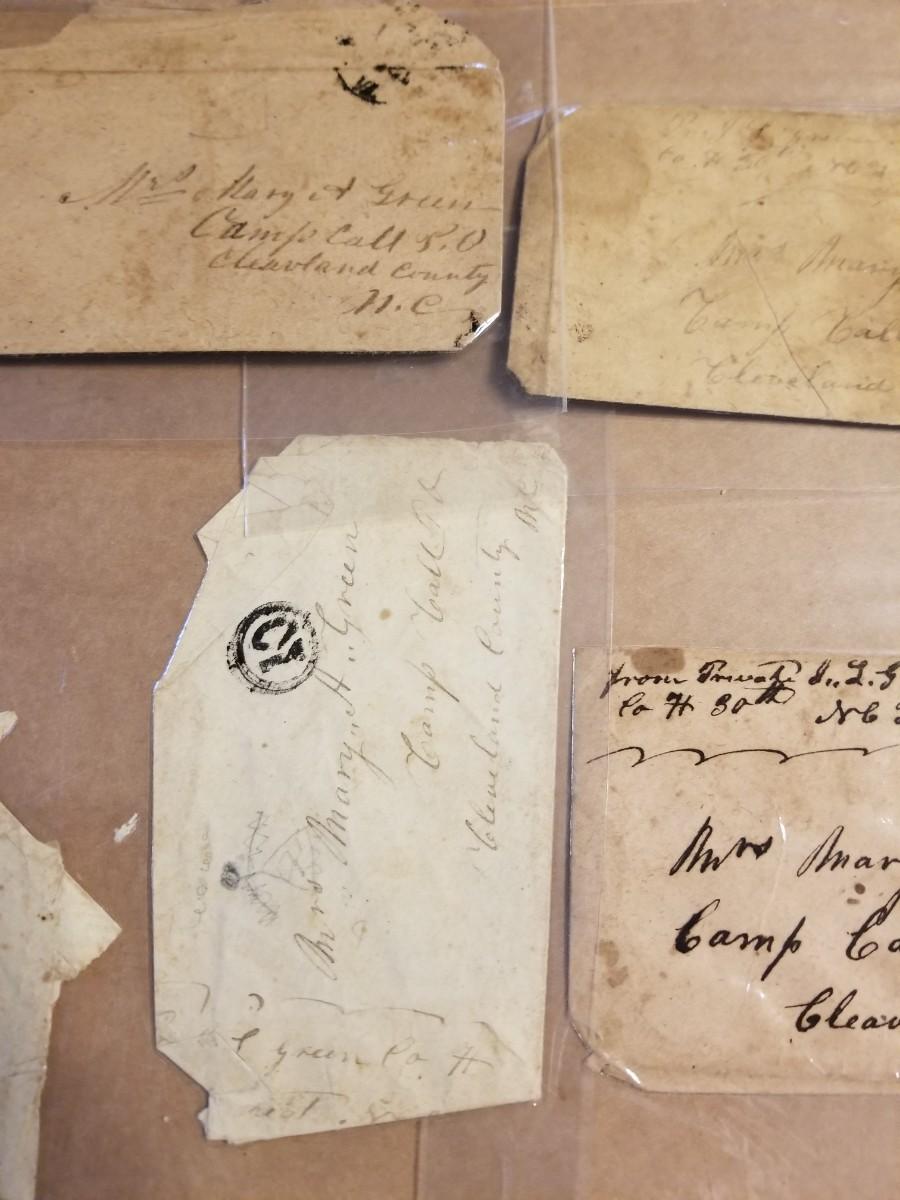 Mrs Mary A Green
Camp Call P.O
Cleavland County
N.C
Co H 30th
Mrs Mary
Camp Call
Cleveland
Mrs Mary A Green
Camp Call PO
Cleveland County NC
green Co H
from Private
Co H 30th NC
Mrs Mar
Camp Ca
Cleav